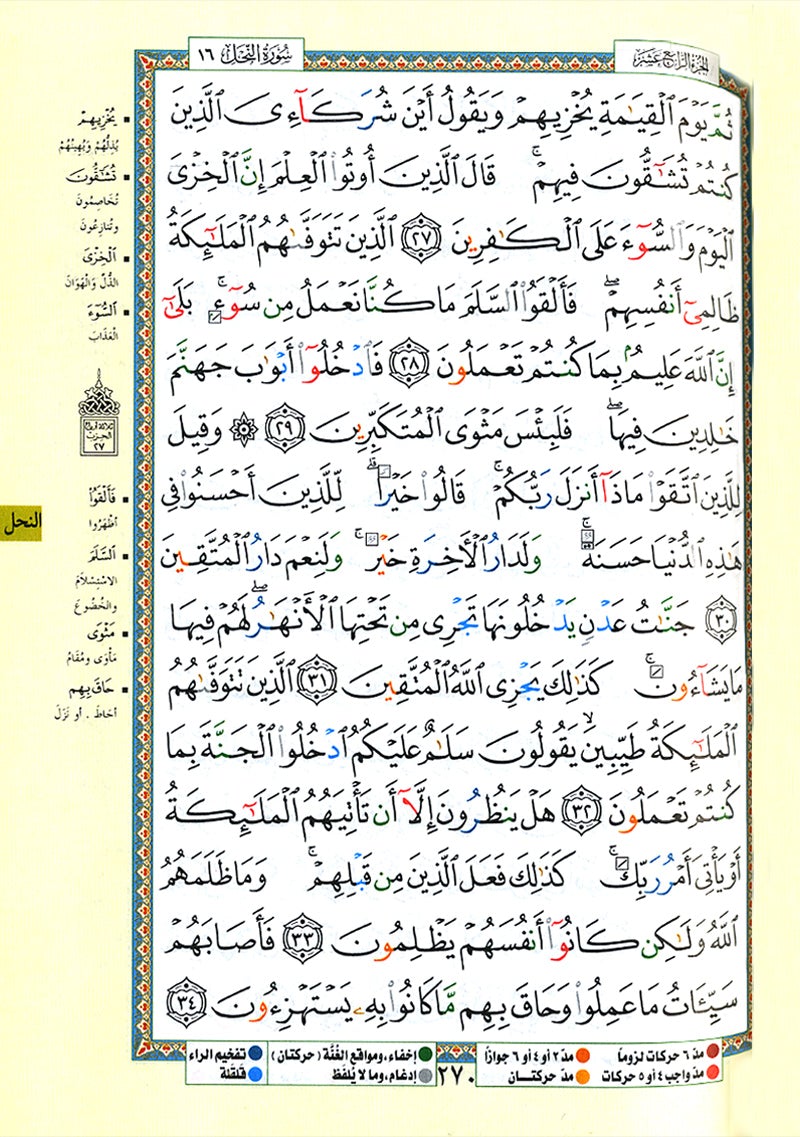 الجزء الرابع عشر
سُورَةُ النَّحْل ١٦
ثُمَّ يَوْمَ ٱلْقِيَٰمَةِ يُخْزِيهِمْ وَيَقُولُ أَيْنَ شُرَكَآءِىَ ٱلَّذِينَ
كُنتُمْ تُشَٰٓقُّونَ فِيهِمْ ۚ قَالَ ٱلَّذِينَ أُوتُوا۟ ٱلْعِلْمَ إِنَّ ٱلْخِزْىَ
ٱلْيَوْمَ وَٱلسُّوٓءَ عَلَى ٱلْكَٰفِرِينَ ٢٧ ٱلَّذِينَ تَتَوَفَّىٰهُمُ ٱلْمَلَٰٓئِكَةُ
ظَالِمِىٓ أَنفُسِهِمْ ۖ فَأَلْقَوُا۟ ٱلسَّلَمَ مَا كُنَّا نَعْمَلُ مِن سُوٓءٍۭ ۚ بَلَىٰٓ
إِنَّ ٱللَّهَ عَلِيمٌۢ بِمَا كُنتُمْ تَعْمَلُونَ ٢٨ فَٱدْخُلُوٓا۟ أَبْوَٰبَ جَهَنَّمَ
خَٰلِدِينَ فِيهَا ۖ فَلَبِئْسَ مَثْوَى ٱلْمُتَكَبِّرِينَ ٢٩ ۞ وَقِيلَ
لِلَّذِينَ ٱتَّقَوْا۟ مَاذَآ أَنزَلَ رَبُّكُمْ ۚ قَالُوا۟ خَيْرًا ۗ لِّلَّذِينَ أَحْسَنُوا۟ فِى
هَٰذِهِ ٱلدُّنْيَا حَسَنَةٌ ۚ وَلَدَارُ ٱلْءَاخِرَةِ خَيْرٌ ۚ وَلَنِعْمَ دَارُ ٱلْمُتَّقِينَ
٣٠ جَنَّٰتُ عَدْنٍ يَدْخُلُونَهَا تَجْرِى مِن تَحْتِهَا ٱلْأَنْهَٰرُ ۖ لَهُمْ فِيهَا
مَا يَشَآءُونَ ۚ كَذَٰلِكَ يَجْزِى ٱللَّهُ ٱلْمُتَّقِينَ ٣١ ٱلَّذِينَ تَتَوَفَّىٰهُمُ
ٱلْمَلَٰٓئِكَةُ طَيِّبِينَ ۙ يَقُولُونَ سَلَٰمٌ عَلَيْكُمُ ٱدْخُلُوا۟ ٱلْجَنَّةَ بِمَا
كُنتُمْ تَعْمَلُونَ ٣٢ هَلْ يَنظُرُونَ إِلَّآ أَن تَأْتِيَهُمُ ٱلْمَلَٰٓئِكَةُ
أَوْ يَأْتِىَ أَمْرُ رَبِّكَ ۚ كَذَٰلِكَ فَعَلَ ٱلَّذِينَ مِن قَبْلِهِمْ ۚ وَمَا ظَلَمَهُمُ
ٱللَّهُ وَلَٰكِن كَانُوٓا۟ أَنفُسَهُمْ يَظْلِمُونَ ٣٣ فَأَصَابَهُمْ
سَيِّـَٔاتُ مَا عَمِلُوا۟ وَحَاقَ بِهِم مَّا كَانُوا۟ بِهِۦ يَسْتَهْزِءُونَ ٣٤
يُخْزِيهِمْ
يُذِلُّهُمْ وَيُهِينُهُمْ
تُشَٰقُّونَ
تُخَاصِمُونَ
وتُنازِعُونَ
ٱلْخِزْىَ
الذُّلَّ وَالْهَوَانَ
ٱلسُّوٓءَ
الْعَذَابَ
ثلاثة أرباع
الحزب
٢٧
فَأَلْقَوُا۟
أظْهَرُوا
النحل
ٱلسَّلَمَ
الاسْتِسْلَامَ
والخُضُوعَ
مَثْوَى
مَأْوَى ومُقَامُ
حَاقَ بِهِم
أحَاطَ . أو نَزَلَ
مدّ ٦ حركات لزوماً
مدّ ٢ أو ٤ أو ٦ جوازاً
مدّ واجب ٤ أو ٥ حركات
مدّ حركتـان
٢٧٠
إخفاء، ومواقع الغُنَّة (حركتان)
تفخيم الراء
إدغام، وما لا يُلفَظ
قلقلة